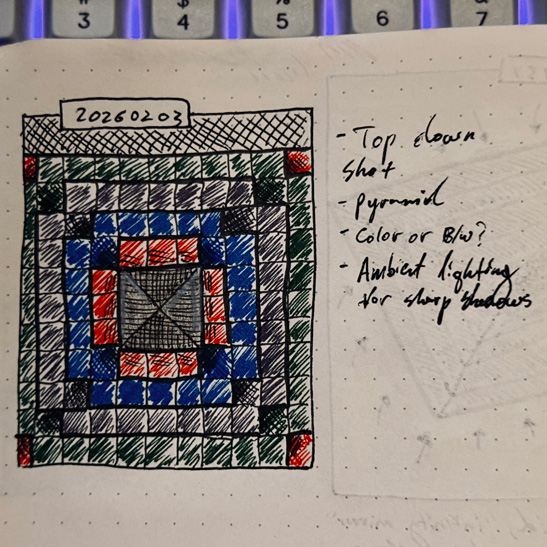 # $ % &
3 4 5 6 7
20260203
- Top down
shot
- Pyramid
- Color or B/W?
- Ambient lighting
for sharp shadows